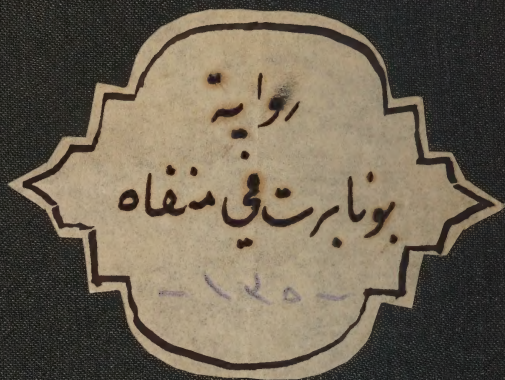 رواية
بونابرت في منفاه
-١٣٥-